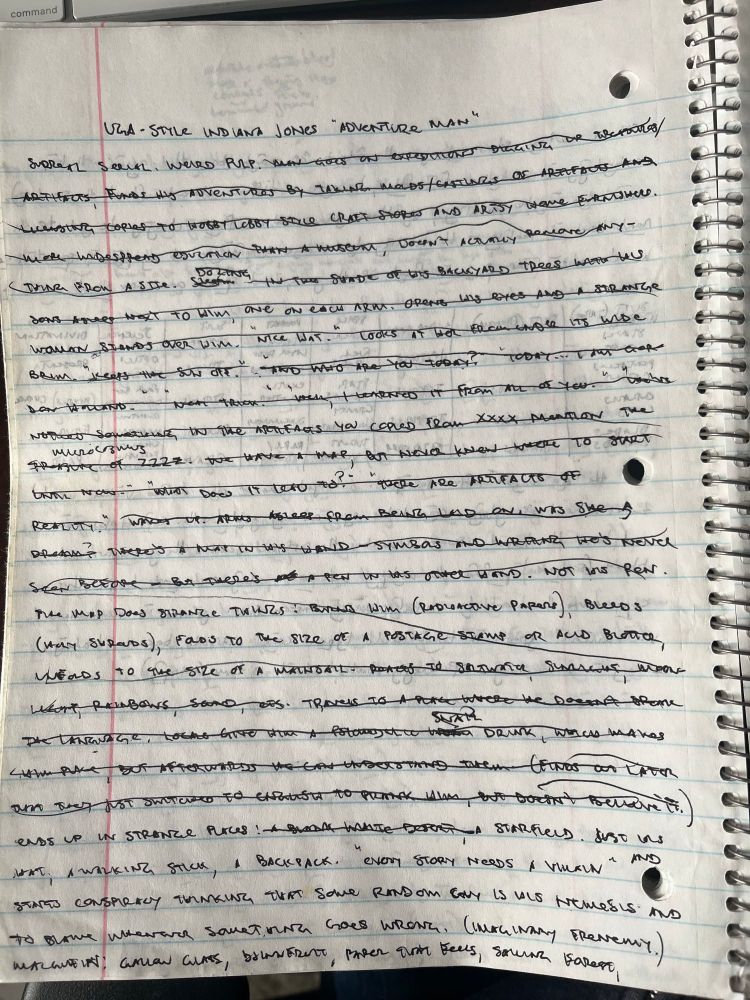 command
UGA-STYLE INDIANA JONES "ADVENTURE MAN"
SURREAL SERIAL. WEIRD PULP. MAN GOES ON EXPEDITIONS DIGGING UP TREASURES/
ARTIFACTS, FUNDS HIS ADVENTURES BY TAKING MOLDS/CASTINGS OF ARTIFACTS AND
LICENSING COPIES TO HOBBY LOBBY STYLE CRAFT STORES AND ARTSY HOME FURNISHERS.
MORE WIDESPREAD EDUCATION THAN A MUSEUM, DOESN'T ACTUALLY REMOVE ANY-
THING FROM A SITE. DOZING IN THE SHADE OF HIS BACKYARD TREES WITH HIS
SONS ASLEEP NEXT TO HIM, ONE ON EACH ARM. OPENS HIS EYES AND A STRANGE
WOMAN STANDS OVER HIM. "NICE HAT." LOOKS AT HER FROM UNDER ITS WIDE
BRIM. "KEEPS THE SUN OFF." "AND WHO ARE YOU TODAY?" "TODAY... I AM
DON " "WELL, I LEARNED IT FROM ALL OF YOU." "YOU'VE
NOTICED SOMETHING IN THE ARTIFACTS YOU COPIED FROM XXXX MENTION THE
MICROCOSMOS
TREASURE OF ZZZZ. WE HAVE A MAP, BUT NEVER KNEW WHERE TO START
UNTIL NOW." "WHAT DOES IT LEAD TO?" "THERE ARE ARTIFACTS OF
REALITY." WAKES UP. ARMS ASLEEP FROM BEING LAID ON. WAS SHE A
DREAM? THERE'S A MAP IN HIS HAND - SYMBOLS AND WRITING HE'S NEVER
SEEN BEFORE - BUT THERE'S A PEN IN HIS OTHER HAND. NOT HIS PEN.
THE MAP DOES STRANGE THINGS: BURNS HIM (RADIOACTIVE PAPERS), BLEEDS
(HOLY SHROUDS), FOLDS TO THE SIZE OF A POSTAGE STAMP OR ACID BLOTTER,
UNFOLDS TO THE SIZE OF A MAINSAIL. REACTS TO SALTWATER, SUNLIGHT, MOON-
LIGHT, RAINBOWS, SOUND, ETC. TRAVELS TO A PLACE WHERE HE DOESN'T SPEAK
THE LANGUAGE. LOCALS GIVE HIM A PSYCHEDELIC SNAIL DRINK, WHICH MAKES
HIM PUKE, BUT AFTERWARDS HE CAN UNDERSTAND THEM (FINDS OUT LATER
THAT THEY JUST SWITCHED TO ENGLISH TO PRANK HIM, BUT DOESN'T BELIEVE IT.)
ENDS UP IN STRANGE PLACES: A BLANK WHITE DESERT, A STARFIELD. JUST HIS
HAT, A WALKING STICK, A BACKPACK. "EVERY STORY NEEDS A VILLAIN" AND
STARTS CONSPIRACY THINKING THAT SOME RANDOM GUY IS HIS NEMESIS AND
TO BLAME WHENEVER SOMETHING GOES WRONG. (IMAGINARY FRENEMY.)
GLASS, PAPER THAT FEELS, SAILING FOREST,